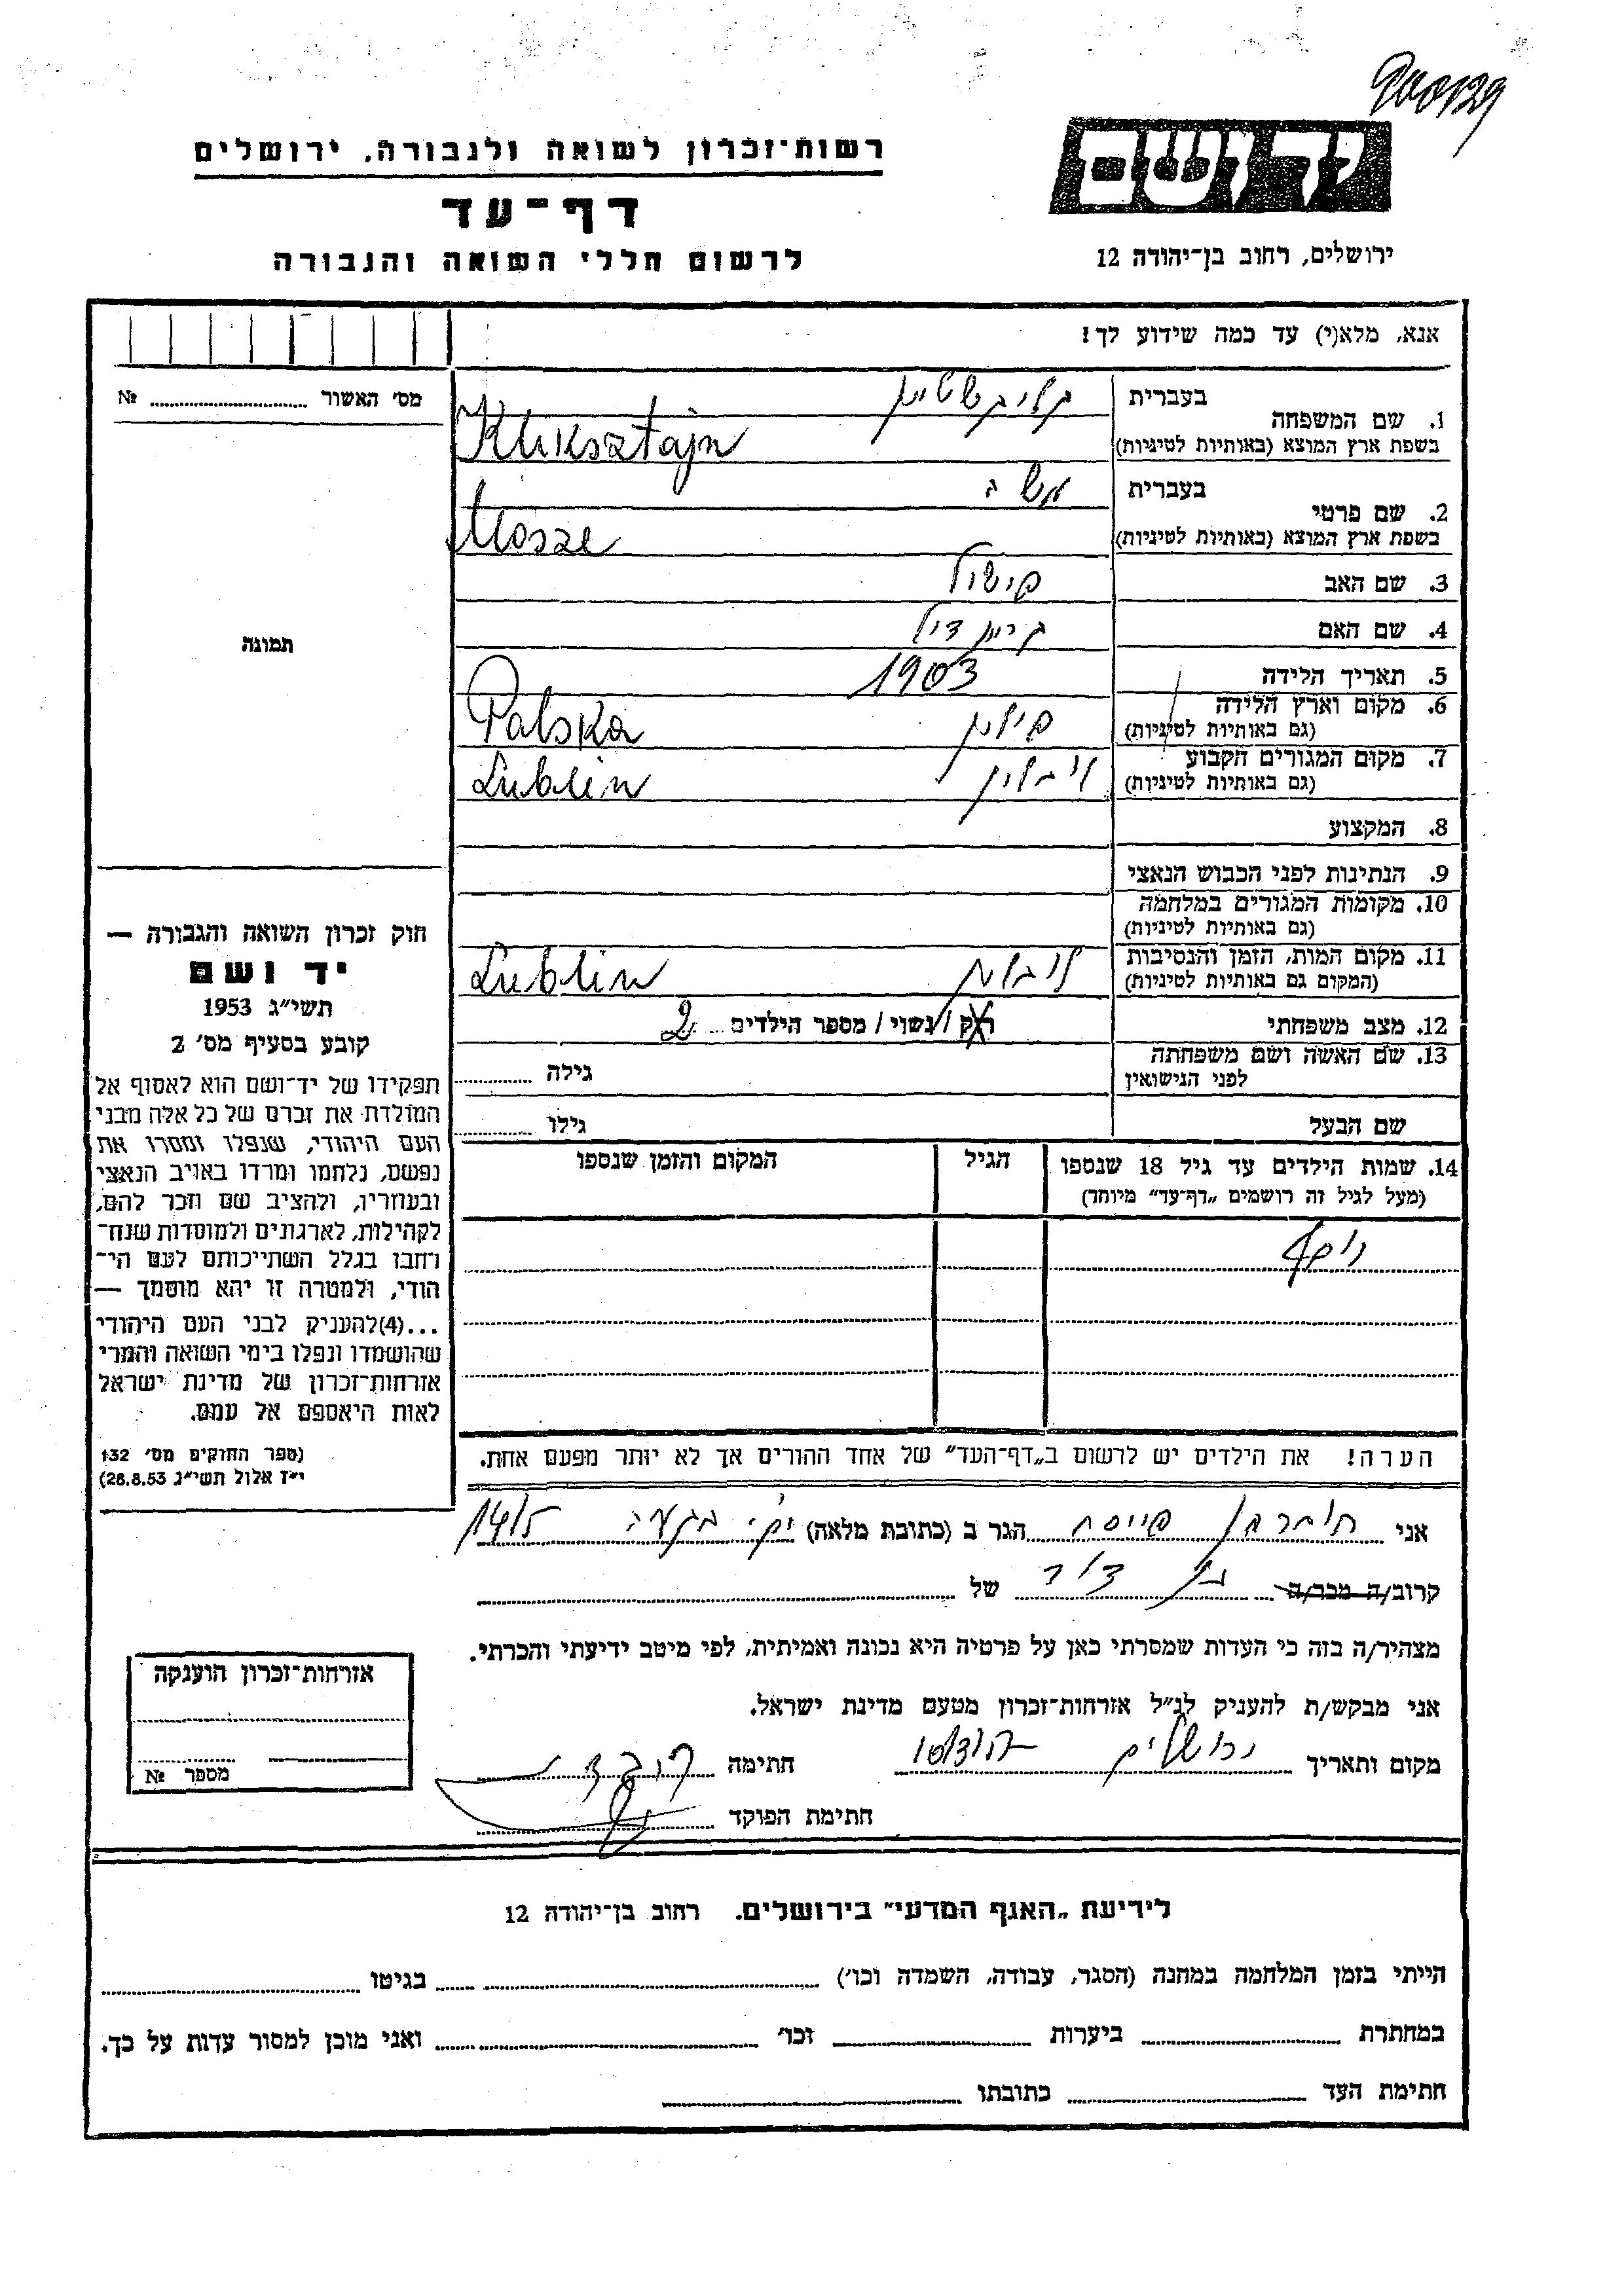 רשות־זכרון לשואה ולגבורה, ירושלים
דף־עד
לרשום חללי השואה והגבורה
יד ושם
ירושלים, רחוב בן־יהודה 12
אנא, מלא(י) עד כמה שידוע לך!
מס׳ האשור № 
תמונה
1. שם המשפחה
בעברית קליקשטיין
בשפת ארץ המוצא (באותיות לטיניות) Kliksztajn
2. שם פרטי
בעברית משה
בשפת ארץ המוצא (באותיות לטיניות) Mosze
3. שם האב פישול
4. שם האם
5. תאריך הלידה 1903
6. מקום וארץ הלידה
(גם באותיות לטיניות) פולין Polska
7. מקום המגורים הקבוע
(גם באותיות לטיניות) לובלין Lublin
8. המקצוע
9. הנתינות לפני הכבוש הנאצי
10. מקומות המגורים במלחמה
(גם באותיות לטיניות)
11. מקום המות, הזמן והנסיבות
(המקום גם באותיות לטיניות) לובלין Lublin
12. מצב משפחתי רוק / נשוי / מספר הילדים 2
13. שם האשה ושם משפחתה
לפני הנישואין גילה
שם הבעל גילו
14. שמות הילדים עד גיל 18 שנספו הגיל המקום והזמן שנספו
(מעל לגיל זה רושמים „דף־עד״ מיוחד)
יוסף
הערה! את הילדים יש לרשום ב„דף־העד״ של אחד ההורים אך לא יותר מפעם אחת.
חוק זכרון השואה והגבורה —
יד ושם
תשי״ג 1953
קובע בסעיף מס׳ 2
תפקידו של יד־ושם הוא לאסוף אל
המולדת את זכרם של כל אלה מבני
העם היהודי, שנפלו ומסרו את
נפשם, נלחמו ומרדו באויב הנאצי
ובעוזריו, ולהציב שם וזכר להם,
לקהילות, לארגונים ולמוסדות שנח־
רחבו בגלל השתייכותם לעם הי־
הודי, ולמטרה זו יהא מוסמך —
...(4)להעניק לבני העם היהודי
שהושמדו ונפלו בימי השואה והמרי
אזרחות־זכרון של מדינת ישראל
לאות היאספם אל עמם.
(ספר החוקים מס׳ 132
י״ז אלול תשי״ג 28.8.53)
אני הגר ב (כתובת מלאה)
קרוב/ה מכר/ה בן דוד של
מצהיר/ה בזה כי העדות שמסרתי כאן על פרטיה היא נכונה ואמיתית, לפי מיטב ידיעתי והכרתי.
אני מבקש/ת להעניק לנ״ל אזרחות־זכרון מטעם מדינת ישראל.
מקום ותאריך ירושלים חתימה
חתימת הפוקד
אזרחות־זכרון הוענקה
מספר №
לידיעת „האגף המדעי״ בירושלים, רחוב בן־יהודה 12
הייתי בזמן המלחמה במחנה (הסגר, עבודה, השמדה וכו׳) בגיטו
במחתרת ביערות וכו׳ ואני מוכן למסור עדות על כך.
חתימת העד כתובתו